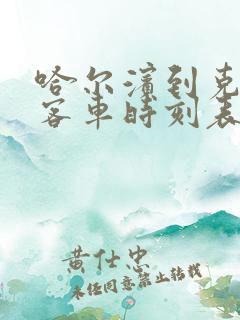 哈尔滨到克
客车时刻表
黄仕忠
未经同意禁止转载